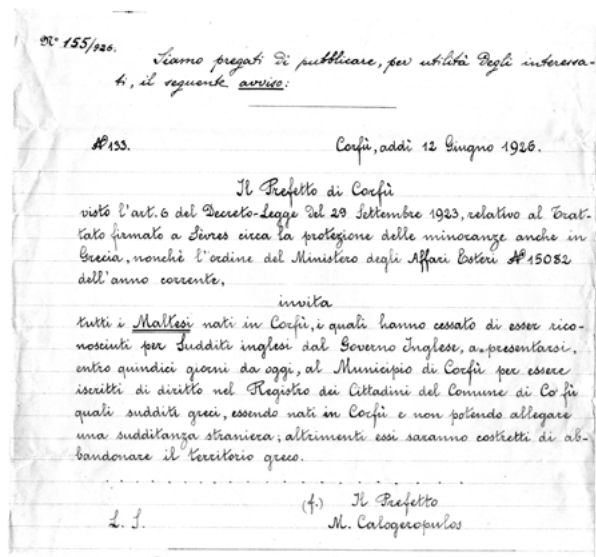 No 155/926.
Siamo pregati di pubblicare, per utilità degli interessa-
ti, il seguente avviso:
No 133. Corfù, addì 12 Giugno 1926.
Il Prefetto di Corfù
visto l'art. 6 del Decreto-Legge del 29 Settembre 1923, relativo al Trat-
tato firmato a Sèvres circa la protezione delle minoranze anche in
Grecia, nonchè l'ordine del Ministero degli Affari Esteri No 15082
dell'anno corrente,
invita
tutti i Maltesi nati in Corfù, i quali hanno cessato di esser rico-
nosciuti per Sudditi inglesi dal Governo Inglese, a presentarsi,
entro quindici giorni da oggi, al Municipio di Corfù per essere
iscritti di diritto nel Registro dei Cittadini del Comune di Co fù
quali sudditi greci, essendo nati in Corfù e non potendo allegare
una sudditanza straniera; altrimenti essi saranno costretti di ab-
bandonare il territorio greco.
(f.) Il Prefetto
L. S. M. Calogeropulos